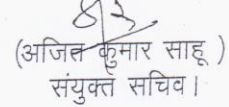 (अजित कुमार साहू )
संयुक्त सचिव।